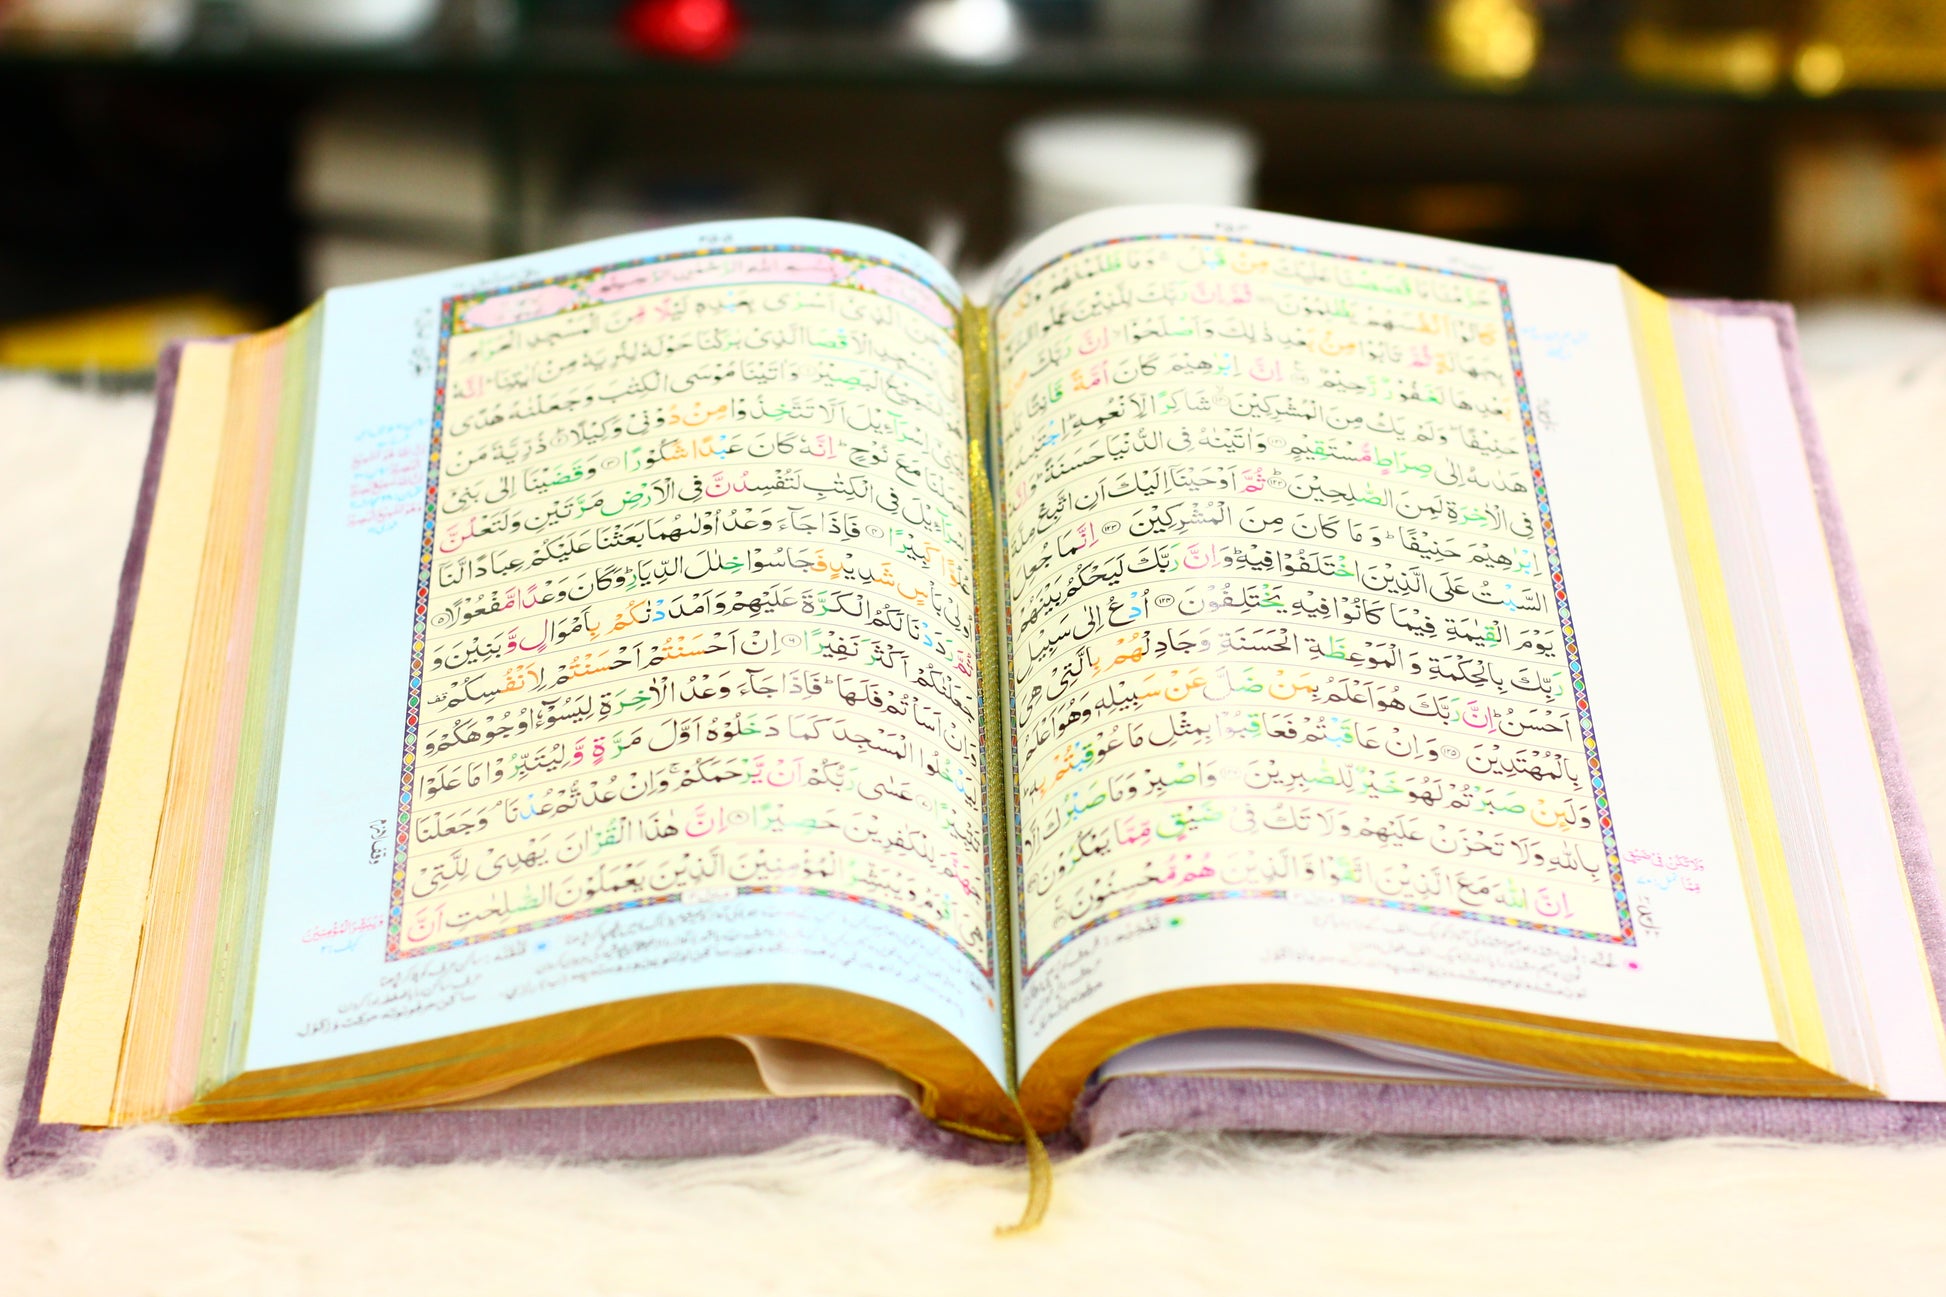 حَرَّمْنَا مَا قَصَصْنَا عَلَيْكَ مِنْ قَبْلُ ۚ وَمَا ظَلَمْنٰهُمْ
كَانُوْۤا اَنْفُسَهُمْ يَظْلِمُوْنَ ثُمَّ اِنَّ رَبَّكَ لِلَّذِيْنَ عَمِلُوا السُّوْٓءَ
بِجَهَالَةٍ ثُمَّ تَابُوْا مِنْۢ بَعْدِ ذٰلِكَ وَاَصْلَحُوْۤا ۙ اِنَّ رَبَّكَ مِنْۢ
بَعْدِهَا لَغَفُوْرٌ رَّحِيْمٌ اِنَّ اِبْرٰهِيْمَ كَانَ اُمَّةً قَانِتًا لِّلّٰهِ
حَنِيْفًا ؕ وَلَمْ يَكُ مِنَ الْمُشْرِكِيْنَ شَاكِرًا لِّاَنْعُمِهٖ ؕ اِجْتَبٰىهُ وَ
هَدٰىهُ اِلٰى صِرَاطٍ مُّسْتَقِيْمٍ ۝ وَاٰتَيْنٰهُ فِى الدُّنْيَا حَسَنَةً ؕ وَاِنَّهٗ
فِى الْاٰخِرَةِ لَمِنَ الصّٰلِحِيْنَ ۝ ثُمَّ اَوْحَيْنَاۤ اِلَيْكَ اَنِ اتَّبِعْ مِلَّةَ
اِبْرٰهِيْمَ حَنِيْفًا ؕ وَمَا كَانَ مِنَ الْمُشْرِكِيْنَ ۝۱۲۳ اِنَّمَا جُعِلَ
السَّبْتُ عَلَى الَّذِيْنَ اخْتَلَفُوْا فِيْهِ ؕ وَاِنَّ رَبَّكَ لَيَحْكُمُ بَيْنَهُمْ
يَوْمَ الْقِيٰمَةِ فِيْمَا كَانُوْا فِيْهِ يَخْتَلِفُوْنَ ۝۱۲۴ اُدْعُ اِلٰى سَبِيْلِ
رَبِّكَ بِالْحِكْمَةِ وَالْمَوْعِظَةِ الْحَسَنَةِ وَجَادِلْهُمْ بِالَّتِىْ هِىَ
اَحْسَنُ ؕ اِنَّ رَبَّكَ هُوَ اَعْلَمُ بِمَنْ ضَلَّ عَنْ سَبِيْلِهٖ وَهُوَ اَعْلَمُ
بِالْمُهْتَدِيْنَ ۝۱۲۵ وَاِنْ عَاقَبْتُمْ فَعَاقِبُوْا بِمِثْلِ مَا عُوْقِبْتُمْ بِهٖ ؕ
وَلَئِنْ صَبَرْتُمْ لَهُوَ خَيْرٌ لِّلصّٰبِرِيْنَ ۝۱۲۶ وَاصْبِرْ وَمَا صَبْرُكَ اِلَّا
بِاللّٰهِ وَلَا تَحْزَنْ عَلَيْهِمْ وَلَا تَكُ فِىْ ضَيْقٍ مِّمَّا يَمْكُرُوْنَ
اِنَّ اللّٰهَ مَعَ الَّذِيْنَ اتَّقَوْا وَّالَّذِيْنَ هُمْ مُّحْسِنُوْنَ
بِسْمِ اللّٰهِ الرَّحْمٰنِ الرَّحِيْمِ
الَّذِىْۤ اَسْرٰى بِعَبْدِهٖ لَيْلًا مِّنَ الْمَسْجِدِ الْحَرَامِ
الْمَسْجِدِ الْاَقْصَا الَّذِىْ بٰرَكْنَا حَوْلَهٗ لِنُرِيَهٗ مِنْ اٰيٰتِنَا ؕ اِنَّهٗ
السَّمِيْعُ الْبَصِيْرُ ۝۱ وَاٰتَيْنَا مُوْسَى الْكِتٰبَ وَجَعَلْنٰهُ هُدًى
اِسْرَآءِيْلَ اَلَّا تَتَّخِذُوْا مِنْ دُوْنِىْ وَكِيْلًا ۝۲ ذُرِّيَّةَ مَنْ
حَمَلْنَا مَعَ نُوْحٍ ؕ اِنَّهٗ كَانَ عَبْدًا شَكُوْرًا ۝۳ وَقَضَيْنَاۤ اِلٰى بَنِىْۤ
اِسْرَآءِيْلَ فِى الْكِتٰبِ لَتُفْسِدُنَّ فِى الْاَرْضِ مَرَّتَيْنِ وَلَتَعْلُنَّ
عُلُوًّا كَبِيْرًا ۝۴ فَاِذَا جَآءَ وَعْدُ اُوْلٰىهُمَا بَعَثْنَا عَلَيْكُمْ عِبَادًا لَّنَاۤ
اُولِىْ بَاْسٍ شَدِيْدٍ فَجَاسُوْا خِلٰلَ الدِّيَارِ ؕ وَكَانَ وَعْدًا مَّفْعُوْلًا ۝۵
ثُمَّ رَدَدْنَا لَكُمُ الْكَرَّةَ عَلَيْهِمْ وَاَمْدَدْنٰكُمْ بِاَمْوَالٍ وَّبَنِيْنَ وَ
جَعَلْنٰكُمْ اَكْثَرَ نَفِيْرًا ۝۶ اِنْ اَحْسَنْتُمْ اَحْسَنْتُمْ لِاَنْفُسِكُمْ
وَاِنْ اَسَاْتُمْ فَلَهَا ؕ فَاِذَا جَآءَ وَعْدُ الْاٰخِرَةِ لِيَسُوْٓءٗا وُجُوْهَكُمْ وَ
لِيَدْخُلُوا الْمَسْجِدَ كَمَا دَخَلُوْهُ اَوَّلَ مَرَّةٍ وَّلِيُتَبِّرُوْا مَا عَلَوْا
تَتْبِيْرًا ۝۷ عَسٰى رَبُّكُمْ اَنْ يَّرْحَمَكُمْ ۚ وَاِنْ عُدْتُّمْ عُدْنَا ۘ وَجَعَلْنَا
جَهَنَّمَ لِلْكٰفِرِيْنَ حَصِيْرًا ۝۸ اِنَّ هٰذَا الْقُرْاٰنَ يَهْدِىْ لِلَّتِىْ
هِىَ اَقْوَمُ وَيُبَشِّرُ الْمُؤْمِنِيْنَ الَّذِيْنَ يَعْمَلُوْنَ الصّٰلِحٰتِ اَنَّ